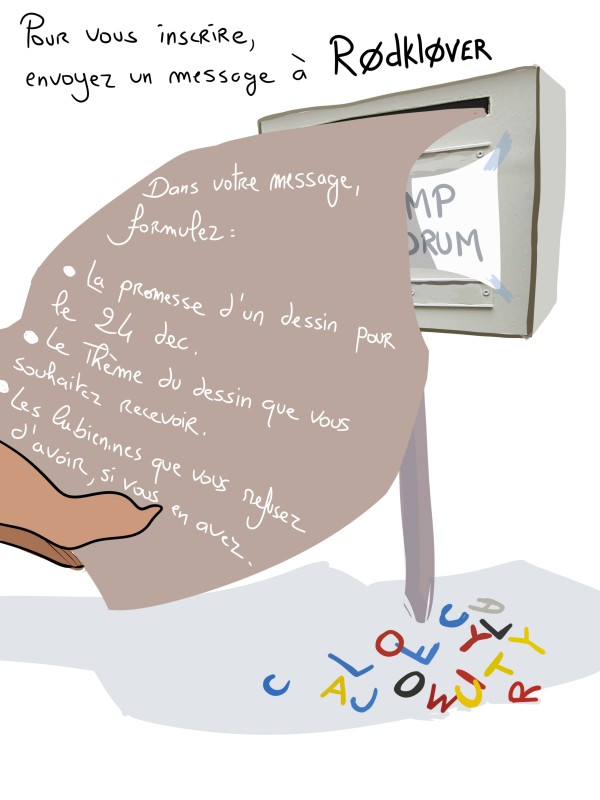 Pour vous inscrire,
envoyez un message à RødkløVER
MP
ORUM
Dans votre message,
formulez :
• La promesse d'un dessin pour
le 24 dec.
• Le Thème du dessin que vous
souhaitez recevoir.
• Les lubien.nes que vous refusez
d'avoir, si vous en avez.
C A
O Y L Y
L E T
C A C O W I U R